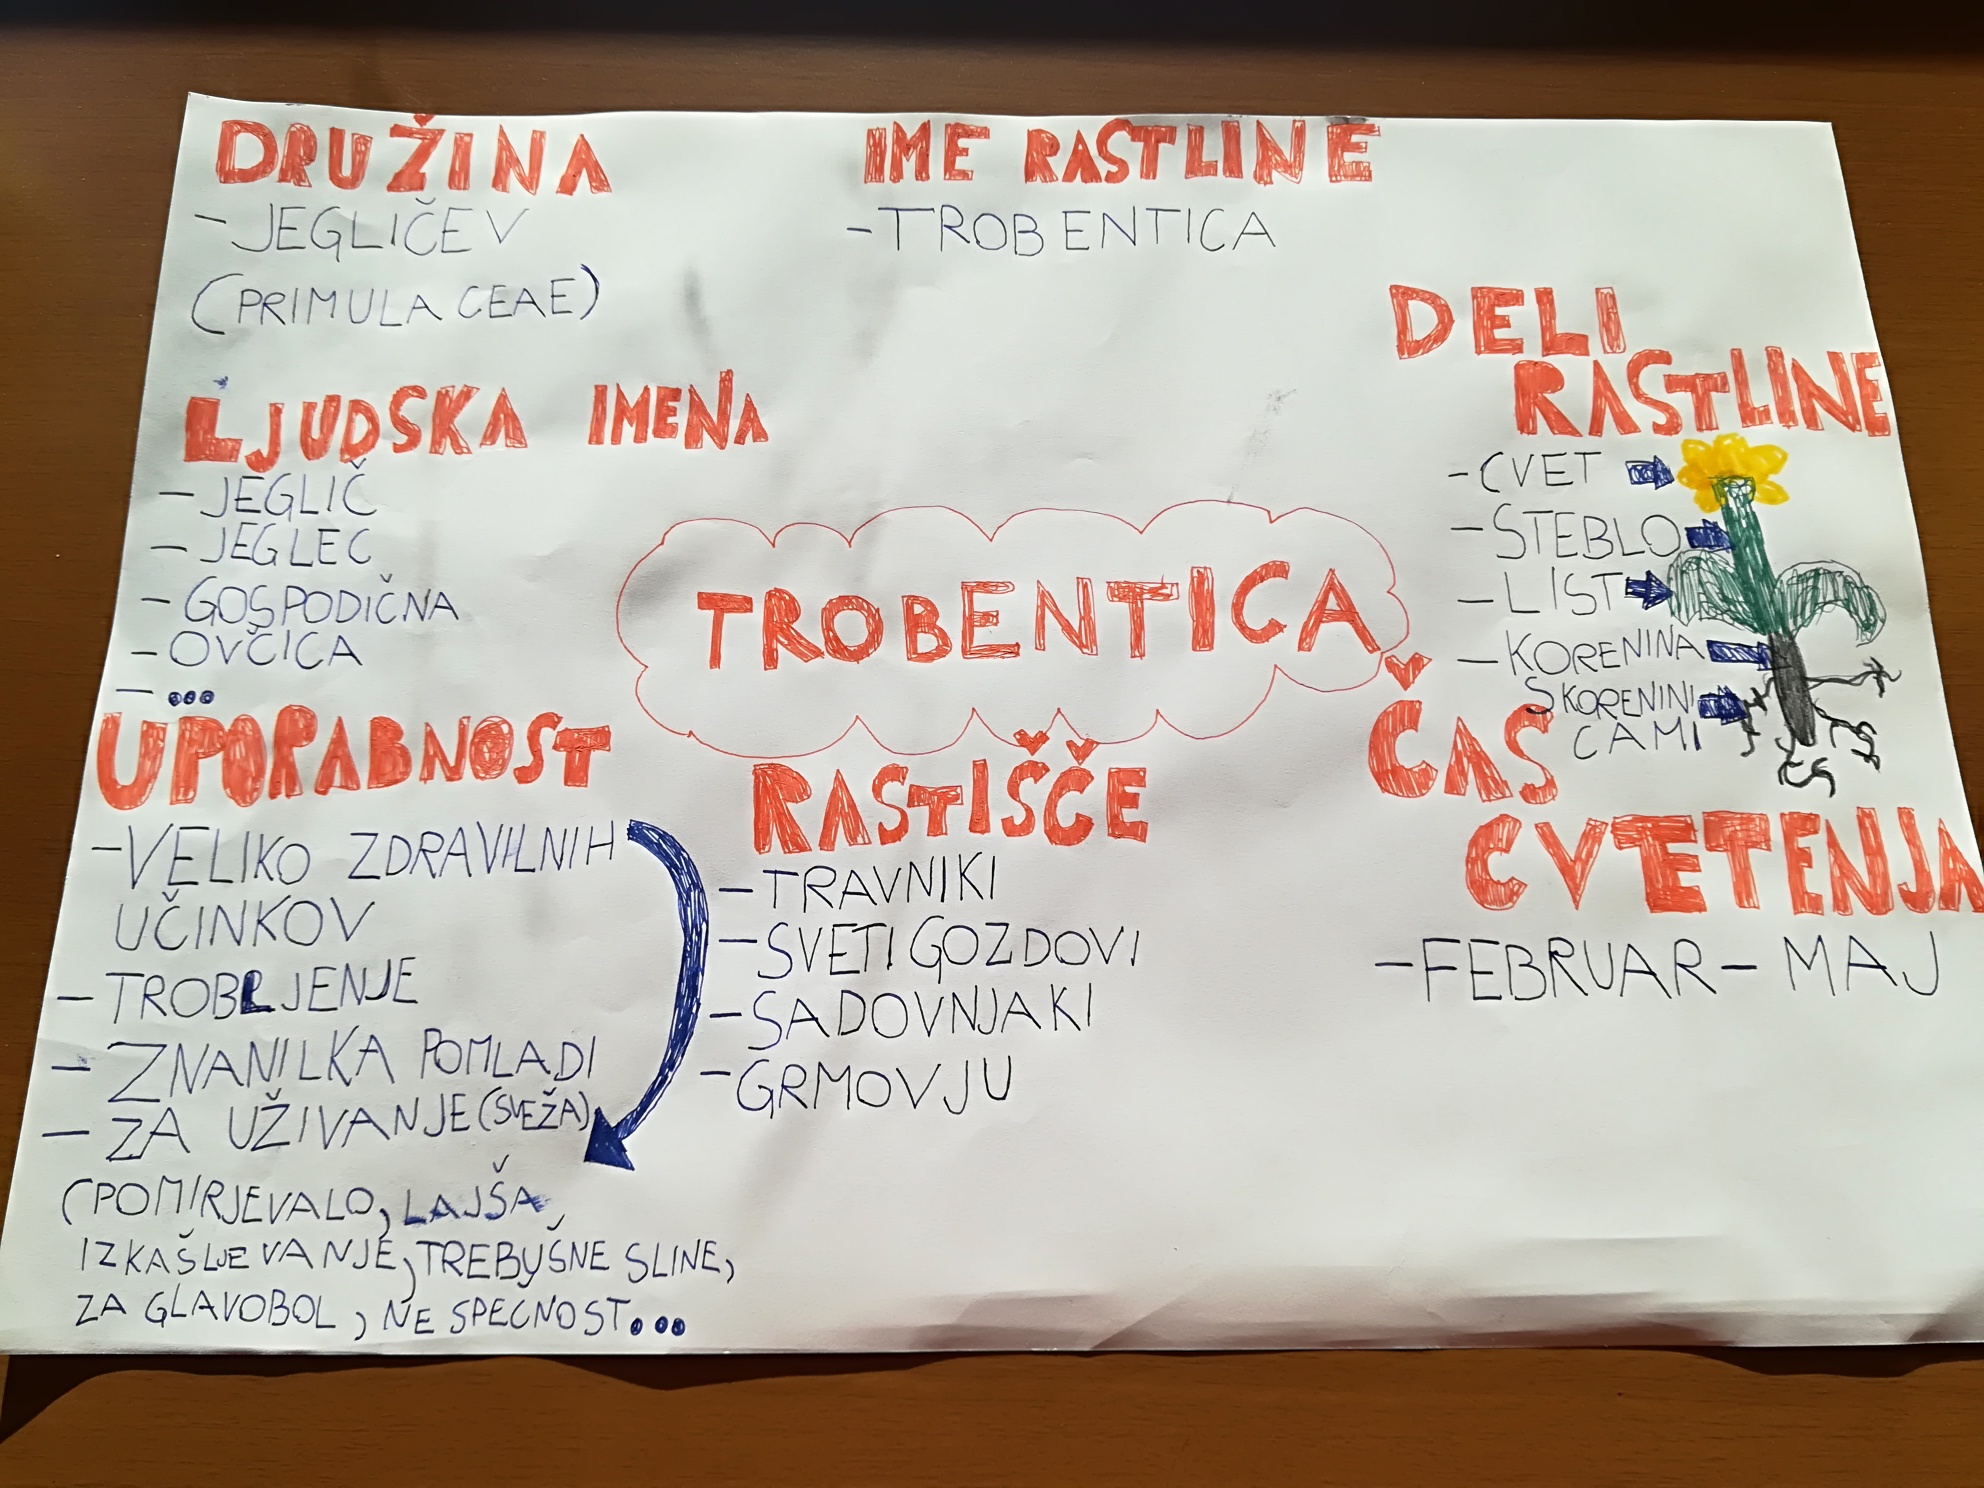 DRUŽINA
- JEGLIČEV
(PRIMULACEAE)
IME RASTLINE
- TROBENTICA
LJUDSKA IMENA
- JEGLIČ
- JEGLEC
- GOSPODIČNA
- OVČICA
- ...
TROBENTICA
DELI
RASTLINE
- CVET
- STEBLO
- LIST
- KORENINA
S KORENINI
CAMI
UPORABNOST
- VELIKO ZDRAVILNIH
UČINKOV
- TROBLJENJE
- ZNANILKA POMLADI
- ZA UŽIVANJE (SVEŽA)
(POMIRJEVALO, LAJŠA
IZKAŠLJEVANJE, TREBUŠNE SLINE,
ZA GLAVOBOL, NE SPEČNOST...
RASTIŠČE
- TRAVNIKI
- SVETI GOZDOVI
- SADOVNJAKI
- GRMOVJU
ČAS
CVETENJA
- FEBRUAR - MAJ